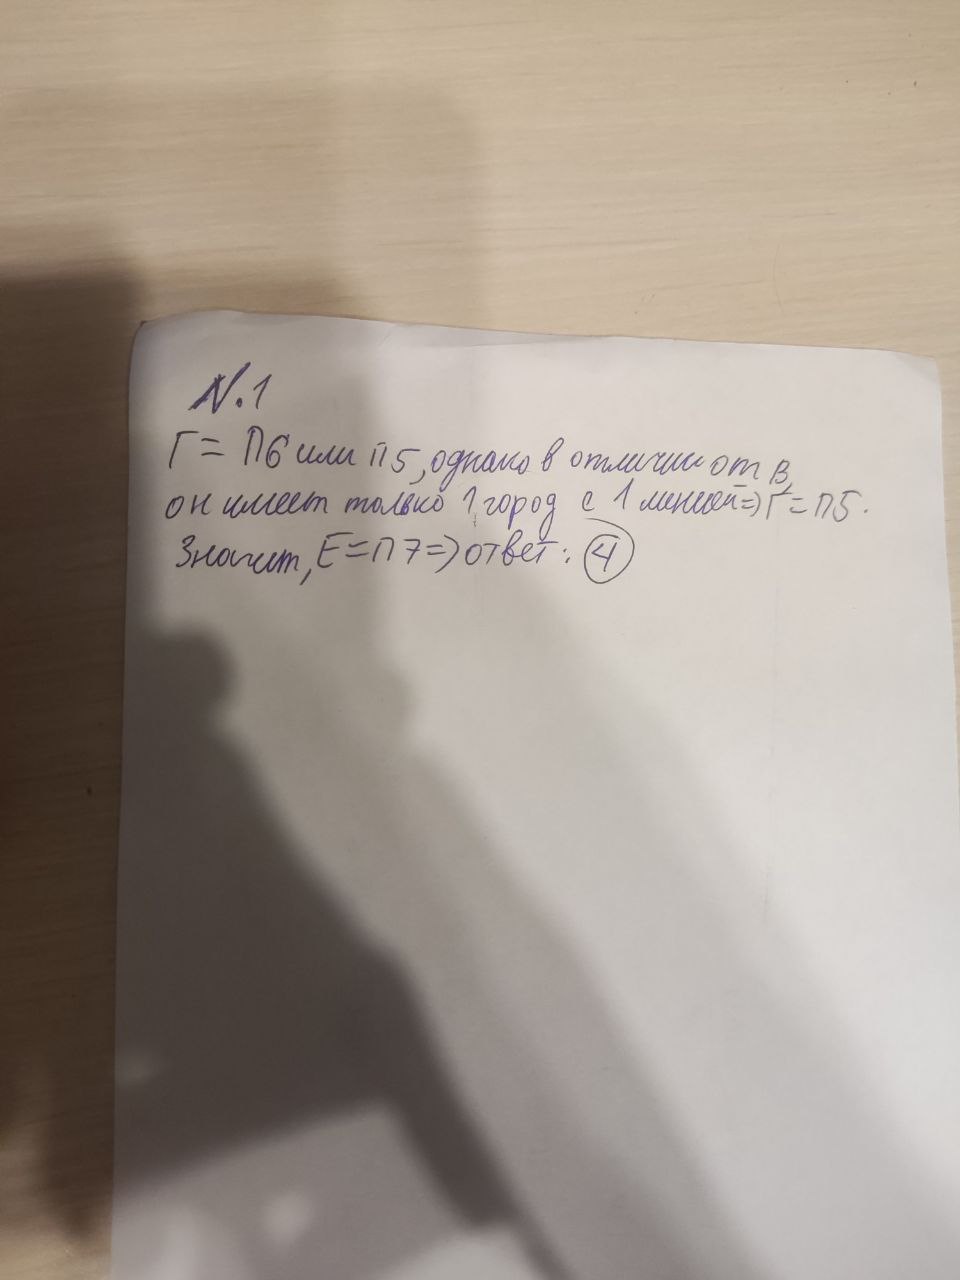 N.1
Г= П6 или П5, однако в отличии от В,
он имеет только 1 город с 1 линией=>Г=П5.
Значит, Е=П7=>ответ: 4